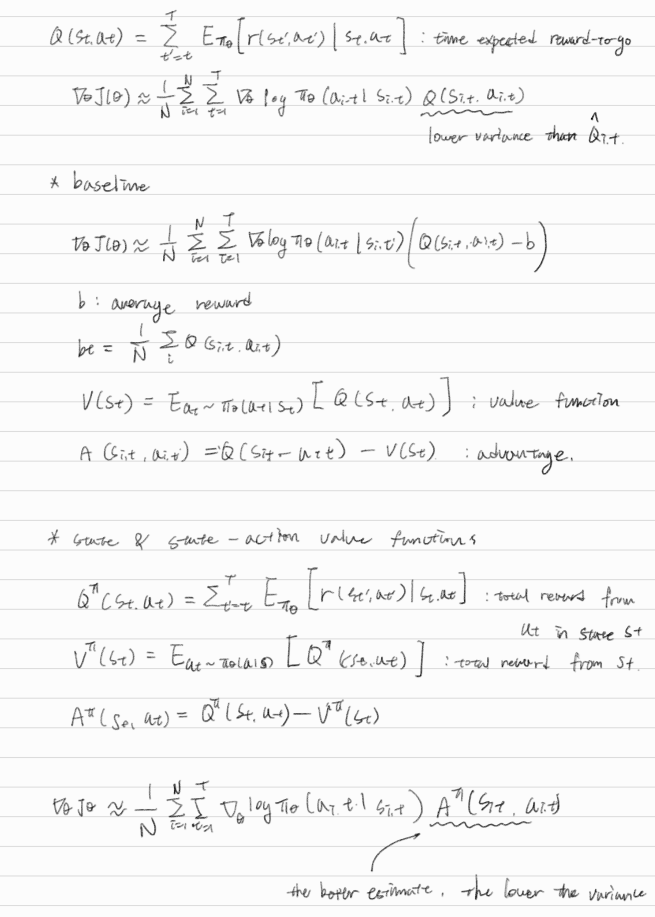 Q(St, at) = Σ_{t'=t}^{T} E_{πθ}[r(St', at') | St, at] : time expected reward-to-go
∇θJ(θ) ≈ 1/N Σ_{i=1}^{N} Σ_{t=1}^{T} ∇θ log πθ(ai,t | si,t) Q(si,t, ai,t)
lower variance than Q̂i,t.
* baseline
∇θJ(θ) ≈ 1/N Σ_{i=1}^{N} Σ_{t=1}^{T} ∇θ log πθ(ai,t | si,t) (Q(si,t, ai,t) - b)
b : average reward
bt = 1/N Σ_i Q(si,t, ai,t)
V(St) = E_{at ~ πθ(at|St)} [Q(St, at)] : value function
A(si,t, ai,t) = Q(si,t, ai,t) - V(St) : advantage.
* state & state-action value functions
Q^π(St, at) = Σ_{t'=t}^{T} E_{πθ}[r(St', at') | St, at] : total reward from
at in state St
V^π(St) = E_{at ~ πθ(a|s)} [Q^π(St, at)] : total reward from St.
A^π(St, at) = Q^π(St, at) - V^π(St)
∇θJθ ≈ 1/N Σ_{i=1}^{N} Σ_{t=1}^{T} ∇θ log πθ(ai,t | si,t) A^π(si,t, ai,t)
the better estimate, the lower the variance